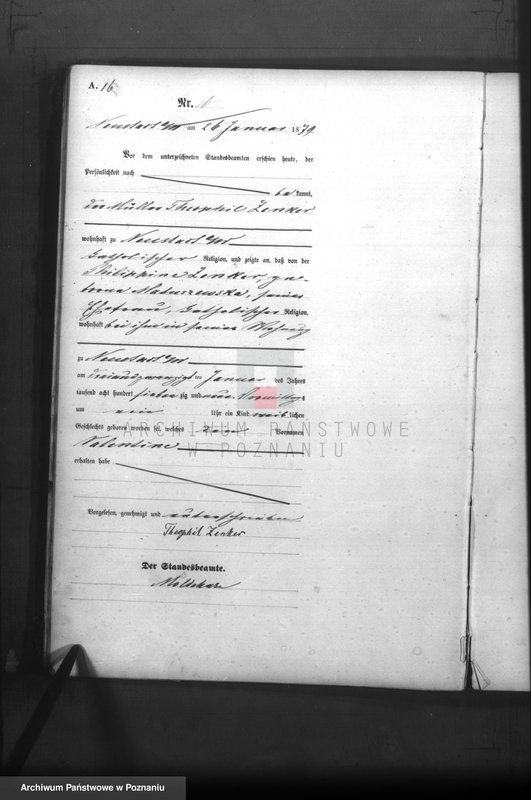 A. 16
Nr.
Neustadt a/W am 26 Januar 1879
Vor dem unterzeichneten Standesbeamten erschien heute, der
Persönlichkeit nach
be kannt,
der Müller Theophil Zenker
wohnhaft zu Neustadt a/W
katholischer Religion, und zeigte an, daß von der
Philippine Zenker, ge-
borne Matuszewska, seiner
Ehefrau, katholischer Religion,
wohnhaft bei ihm in seiner Wohnung
zu Neustadt a/W
am dreiundzwanzigsten Januar des Jahres
tausend acht hundert siebenzig und neun Vormittags
um ein Uhr ein Kind weiblichen
Geschlechts geboren worden sei, welches den Vornamen
Valentine
erhalten habe
Vorgelesen, genehmigt und unterschrieben
Theophil Zenker
Der Standesbeamte.
ARCHIWUM PAŃSTWOWE
W POZNANIU
Archiwum Państwowe w Poznaniu